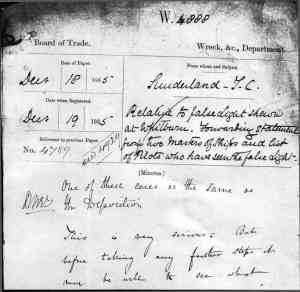 W. 4888
Board of Trade.
Wreck, &c., Department.
Date of Paper.
From whom and Subject.
Decr 18 1885
Sunderland T.C.
Date when Registered.
Decr 19 1885
Relative to false light shewn
at Whitburn. Forwarding statement
from two Masters of Ships and list
of Pilots who have seen the false light.
Reference to previous Paper.
No. 4789
(Minutes.)
One of these cases is the same as
the Deposition
This is very serious. But
before taking any further steps it
may be well to see what